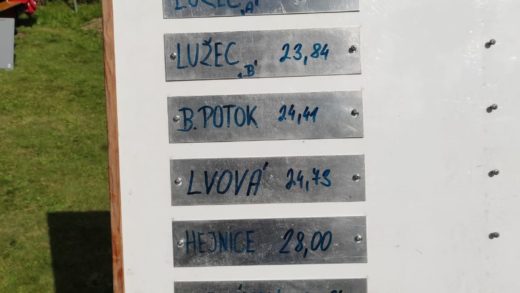 LUŽEC „A"
LUŽEC „B" 23,84
B. POTOK 24,41
LVOVÁ 24,73
HEJNICE 28,00